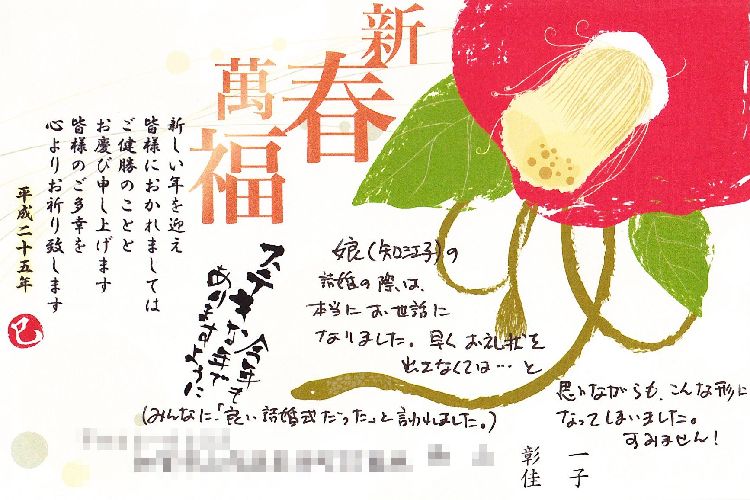 新春
萬福
新しい年を迎え
皆様におかれましては
ご健勝のことと
お慶び申し上げます
皆様のご多幸を
心よりお祈り致します
平成二十五年
巳
今年も
ステキな年で
ありますように
娘(知江子)の
結婚の際は、
本当にお世話に
なりました。早くお礼状を
出さなくては…と
思いながらも、こんな形に
なってしまいました。
すみません!
(みんなに、「良い結婚式だった」と言われました。)
一子
彰佳